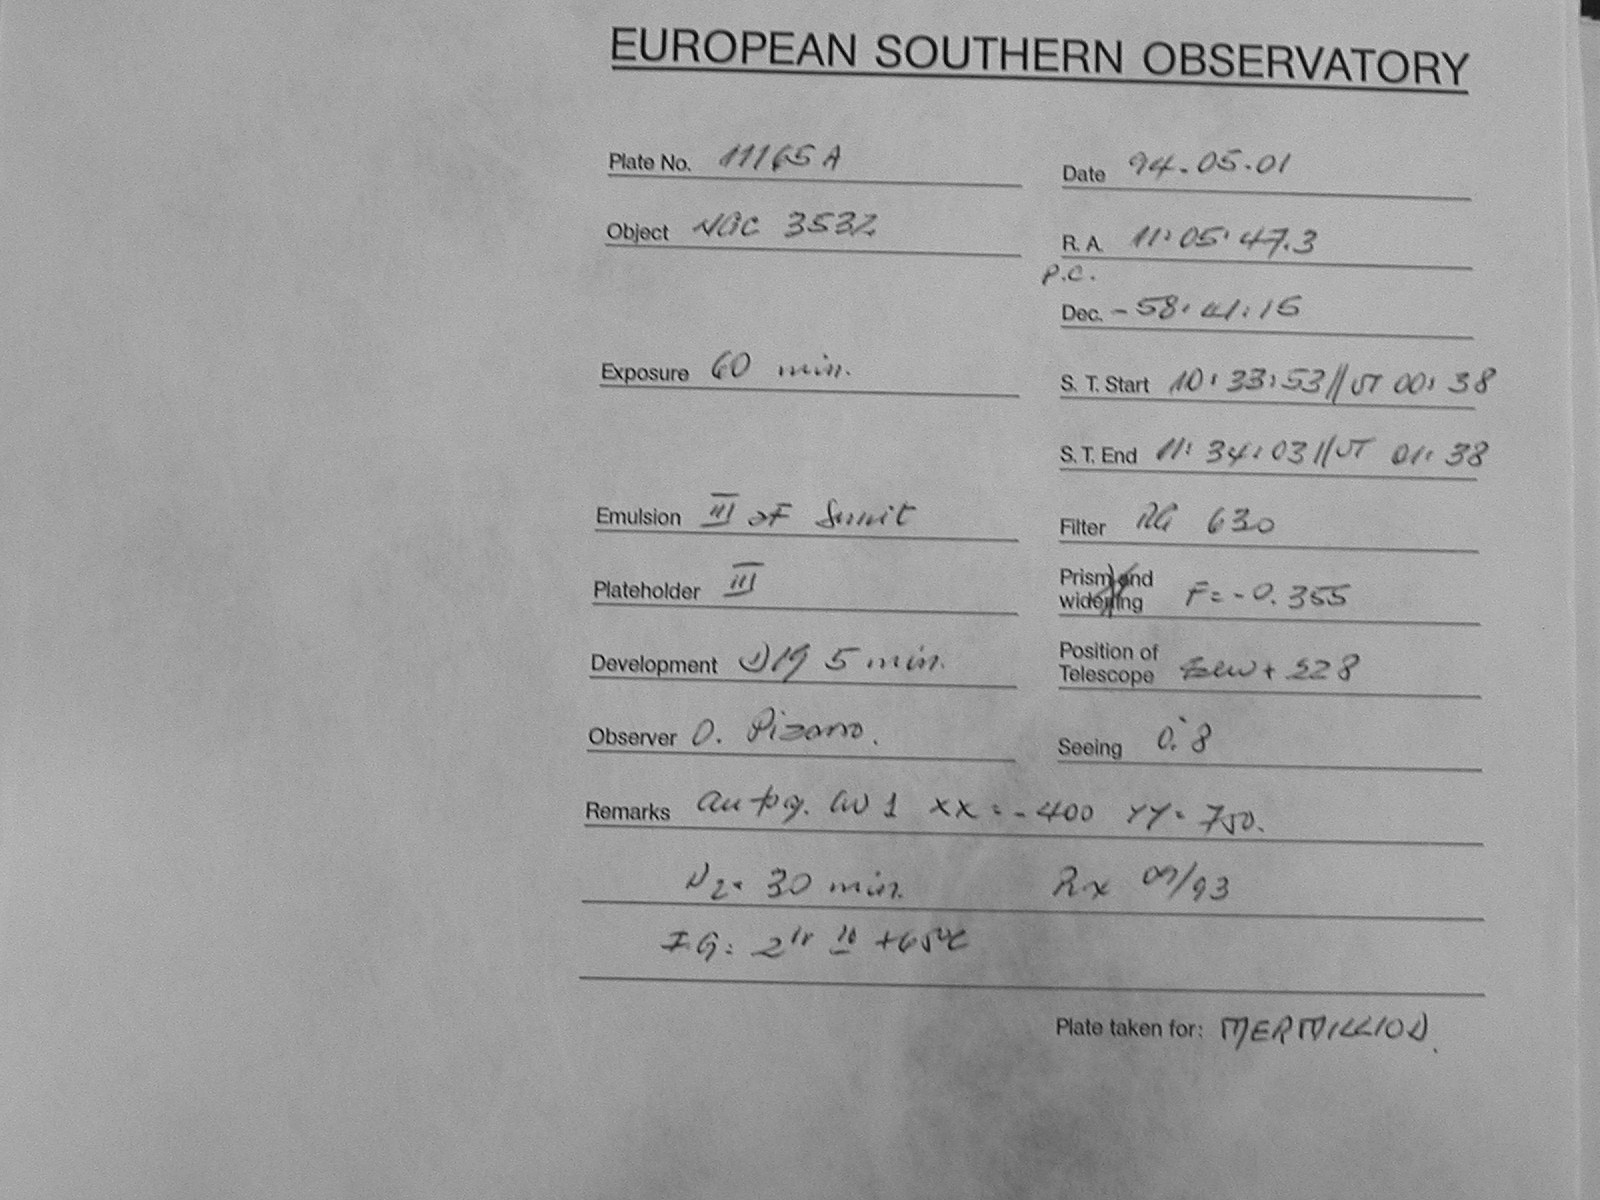 EUROPEAN SOUTHERN OBSERVATORY
Plate No. 11165 A
Date 94.05.01
Object NGC 3532
R. A. 11:05:47.3
P.C.
Dec. -58:41:15
Exposure 60 min.
S. T. Start 10:33:53//UT 00:38
S. T. End 11:34:03//UT 01:38
Emulsion III aF
Filter RG 630
Plateholder III
Prism and widening F=-0.355
Development D19 5 min.
Position of Telescope + 228
Observer O. Pizarro.
Seeing 0.8
Remarks autog. 1 XX=-400 YY=750.
N2= 30 min. Rx 09/93
+65°C
Plate taken for: MERMILLIOD.